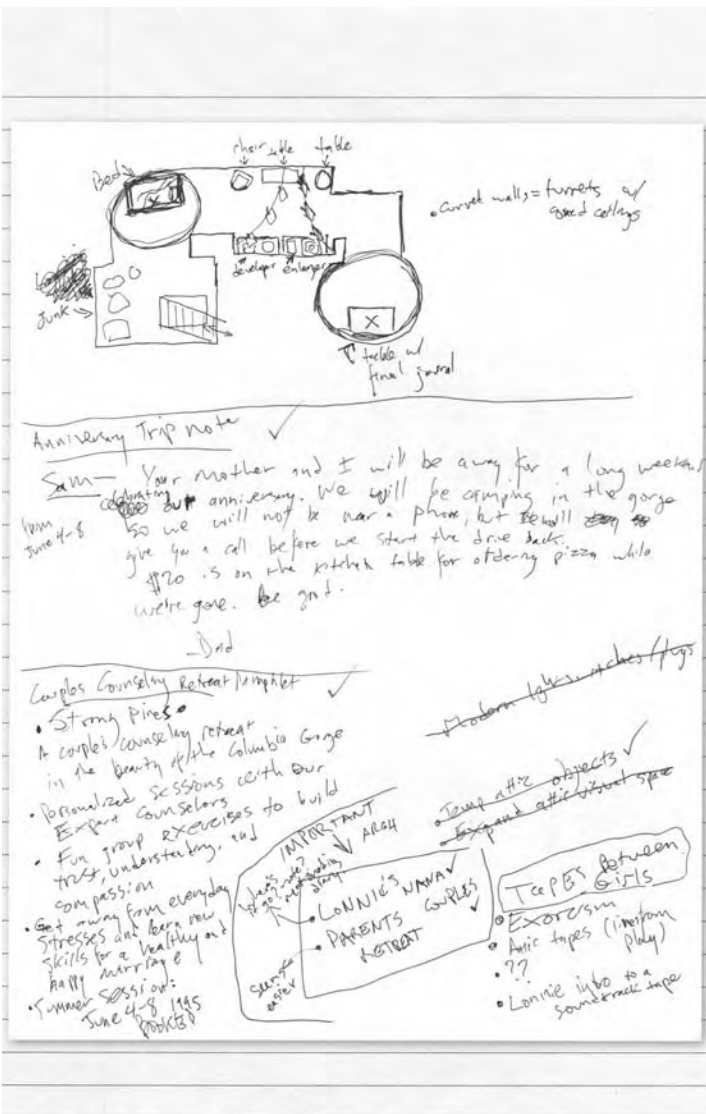 chair table table
Bed
• curved walls = turrets w/
curved ceilings
developer enlarger
Junk
table w/
final journal
Anniversary Trip note ✓
Sam— Your mother and I will be away for a long weekend
from June 4-8
celebrating our anniversary. We will be camping in the gorge
so we will not be near a phone, but will
give you a call before we start the drive back.
$20 is on the kitchen table for ordering pizza while
we're gone. Be good.
-Dad
Couples Counseling Retreat Pamphlet ✓
• Strong Pines •
A couples' counseling retreat
in the beauty of the Columbia Gorge
• Personalized sessions with our
Expert Counselors
• Fun group exercises to build
trust, understanding, and
compassion
• Get away from everyday
stresses and learn new
skills for a healthy and
happy marriage
• Summer Session:
June 4-8 1995
Modern light switches/plugs
• Temp attic objects ✓
• Expand attic visual space
IMPORTANT
ARGH
• LONNIE'S NANA ✓
• PARENTS COUPLES
RETREAT ✓
easier
TAPES Between
Girls
• Exorcism
• Attic tapes (lines from
play)
• ??
• Lonnie intro to a
soundtrack tape